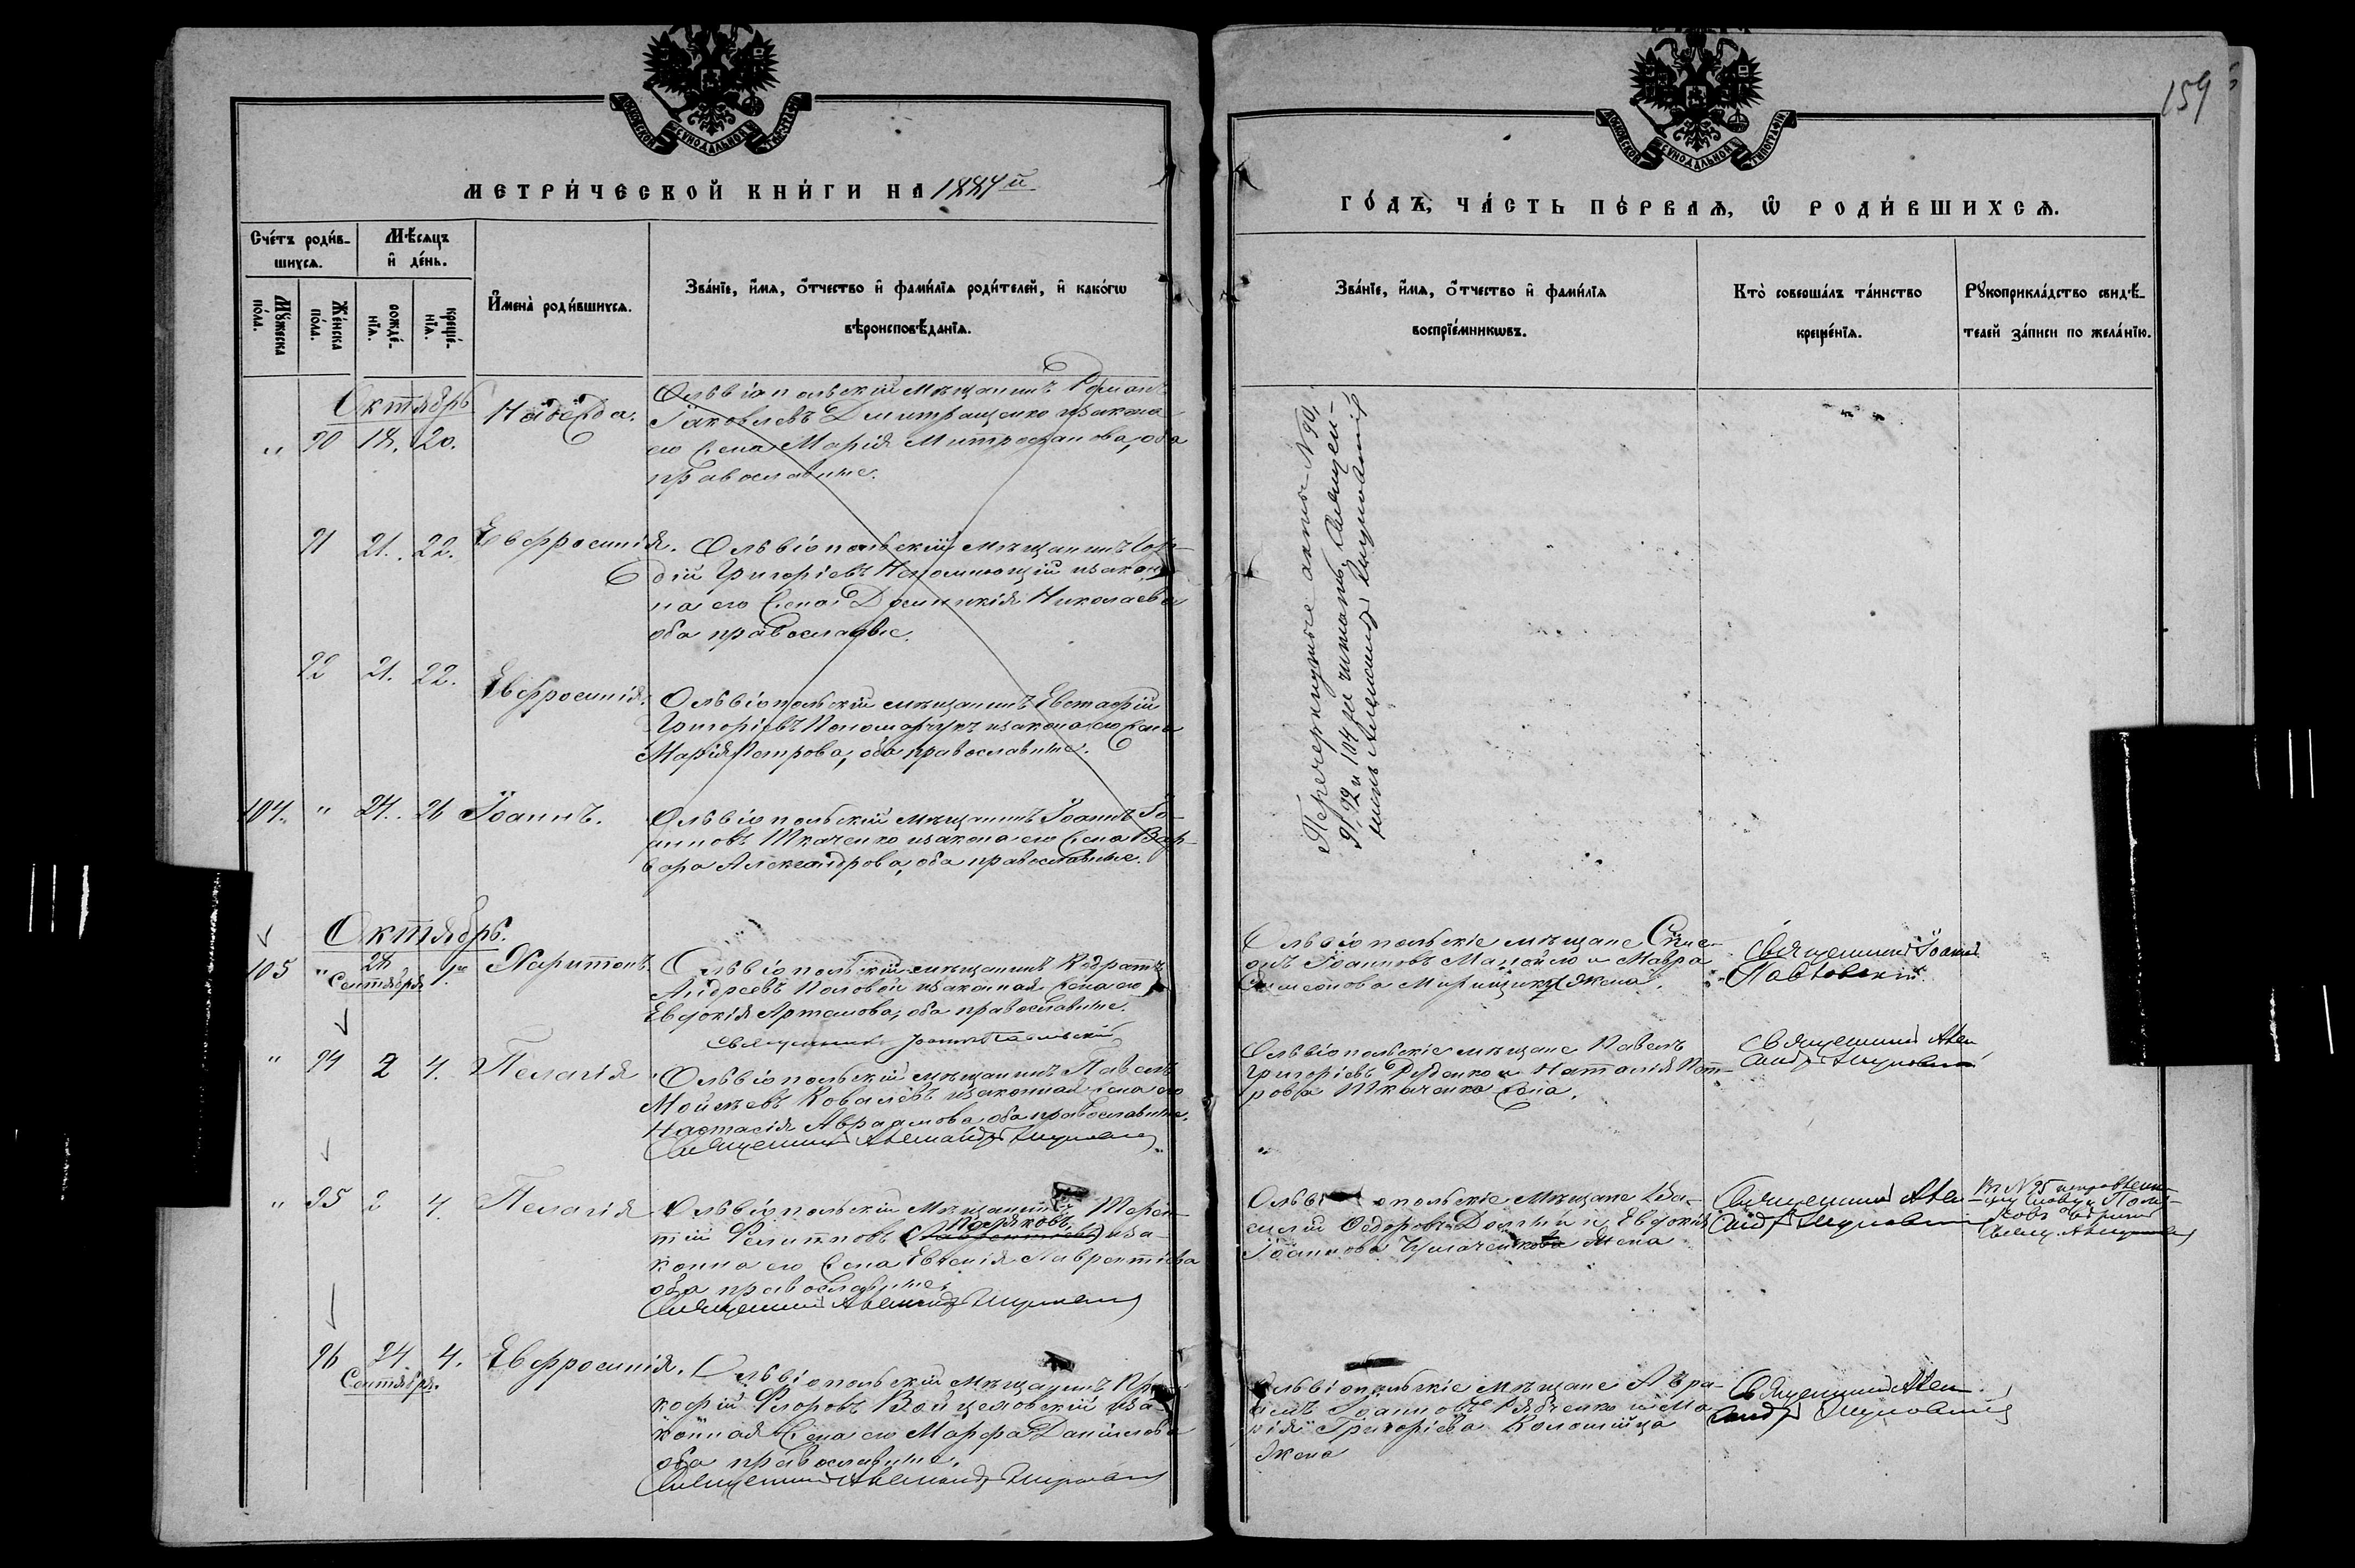 159
МОСКОВСКОЙ СѴНОДАЛЬНОЙ ТИПОГРАФІИ
МЕТРИ́ЧЕСКОЙ КНИ́ГИ НА 1884й
Сче́тъ роди́в-
шихсѧ.
Мѣ́сѧцъ
и҆ де́нь.
Мꙋ́жеска
по́ла.
Же́нска
по́ла.
рожде́-
нїѧ.
креще́-
нїѧ.
И҆мена̀ роди́вшихсѧ.
Зва́нїе, и҆́мѧ, ѻ҆́тчество и҆ фами́лїѧ роди́телей, и҆ како́гѡ
вѣроисповѣ́данїѧ.
Октябрь
" 90 18. 20.
Надежда.
Ольвіопольскій мѣщанинъ Романъ
Іаковлевъ Дмитращенко изаконна
его жена Марія Митрофанова, оба
православные.
91 21. 22. Евфросинія.
Ольвіопольскій мѣщанинъ
Григорьевъ Непомнющій изакон-
на его жена Домникія Николаева
оба православные.
92 21. 22. Евфросинія.
Ольвіопольскій мѣщанинъ Евстафій
Григорьевъ Пономарчукъ изакона его жена
Марія Петрова, оба православные.
104. " 24. 26 Іоаннъ.
Ольвіопольскій мѣщанинъ Іоаннъ Іо-
анновъ Ткаченко изакона его жена Вар-
вара Александрова, оба православные.
Октябрь.
105 " 28 Сентября 1го Харитонъ.
Ольвіопольскій мѣщанинъ Кодратъ
Андреевъ Половой изаконная жена его
Евдокія Артемова, оба православные.
Священникъ Іоаннъ Павловскій
" 94 2 4. Пелагія
Ольвіопольскій мѣщанинъ Павелъ
Мойсеевъ Ковалевъ изаконная жена его
Настасія Авраамова оба православные.
Священникъ Александръ
" 95 2 4. Пелагія
Ольвіопольскій Мѣщанинъ Терен-
тій Филипповъ Поляковъ (Лаврентіевъ) иза-
конна его жена Евгенія Лаврентіева
оба православные.
Священникъ Александръ
96 24. Сентября. 4. Евфросинія.
Ольвіопольскій мѣщанинъ Про-
кофій Флоровъ Войцеховскій иза-
конная жена его Марфа Даніилова
оба православные.
Священникъ Александръ
МОСКОВСКОЙ СѴНОДАЛЬНОЙ ТИПОГРАФІИ
ГО́ДЪ, ЧА́СТЬ ПЕ́РВАѦ, Ѡ҆ РОДИ́ВШИХСѦ.
Зва́нїе, и҆́мѧ, ѻ҆́тчество и҆ фами́лїѧ
воспрїе́мникѡвъ.
Кто̀ соверша́лъ та́инство
креще́нїѧ.
Рꙋкоприкла́дство свидѣ́-
телей за́писи по жела́нїю.
Перечеркнутые актъ № 90,
91, 92 и 104 не читать, Священ-
никъ Александръ
Ольвіопольскіе мѣщане Симе-
онъ Іоанновъ Манойло и Мавра
Симеонова жена.
Священникъ Іоаннъ
Павловскій.
Ольвіопольскіе мѣщане Павелъ
Григорьевъ Руденко и Наталія Пет-
рова Ткаченко жена.
Священникъ Алек-
сандръ
Ольвіопольскіе Мѣщане Ва-
силій Федоровъ и Евдокія
Іоаннова жена
Священникъ Алек-
сандръ
Въ № 95
Поля-
ковъ
Ольвіопольскіе мѣщане Авра-
амъ Іоанновъ Рябченко и Ма-
рія Григоріева Коломійца
жена
Священникъ Алек-
сандръ